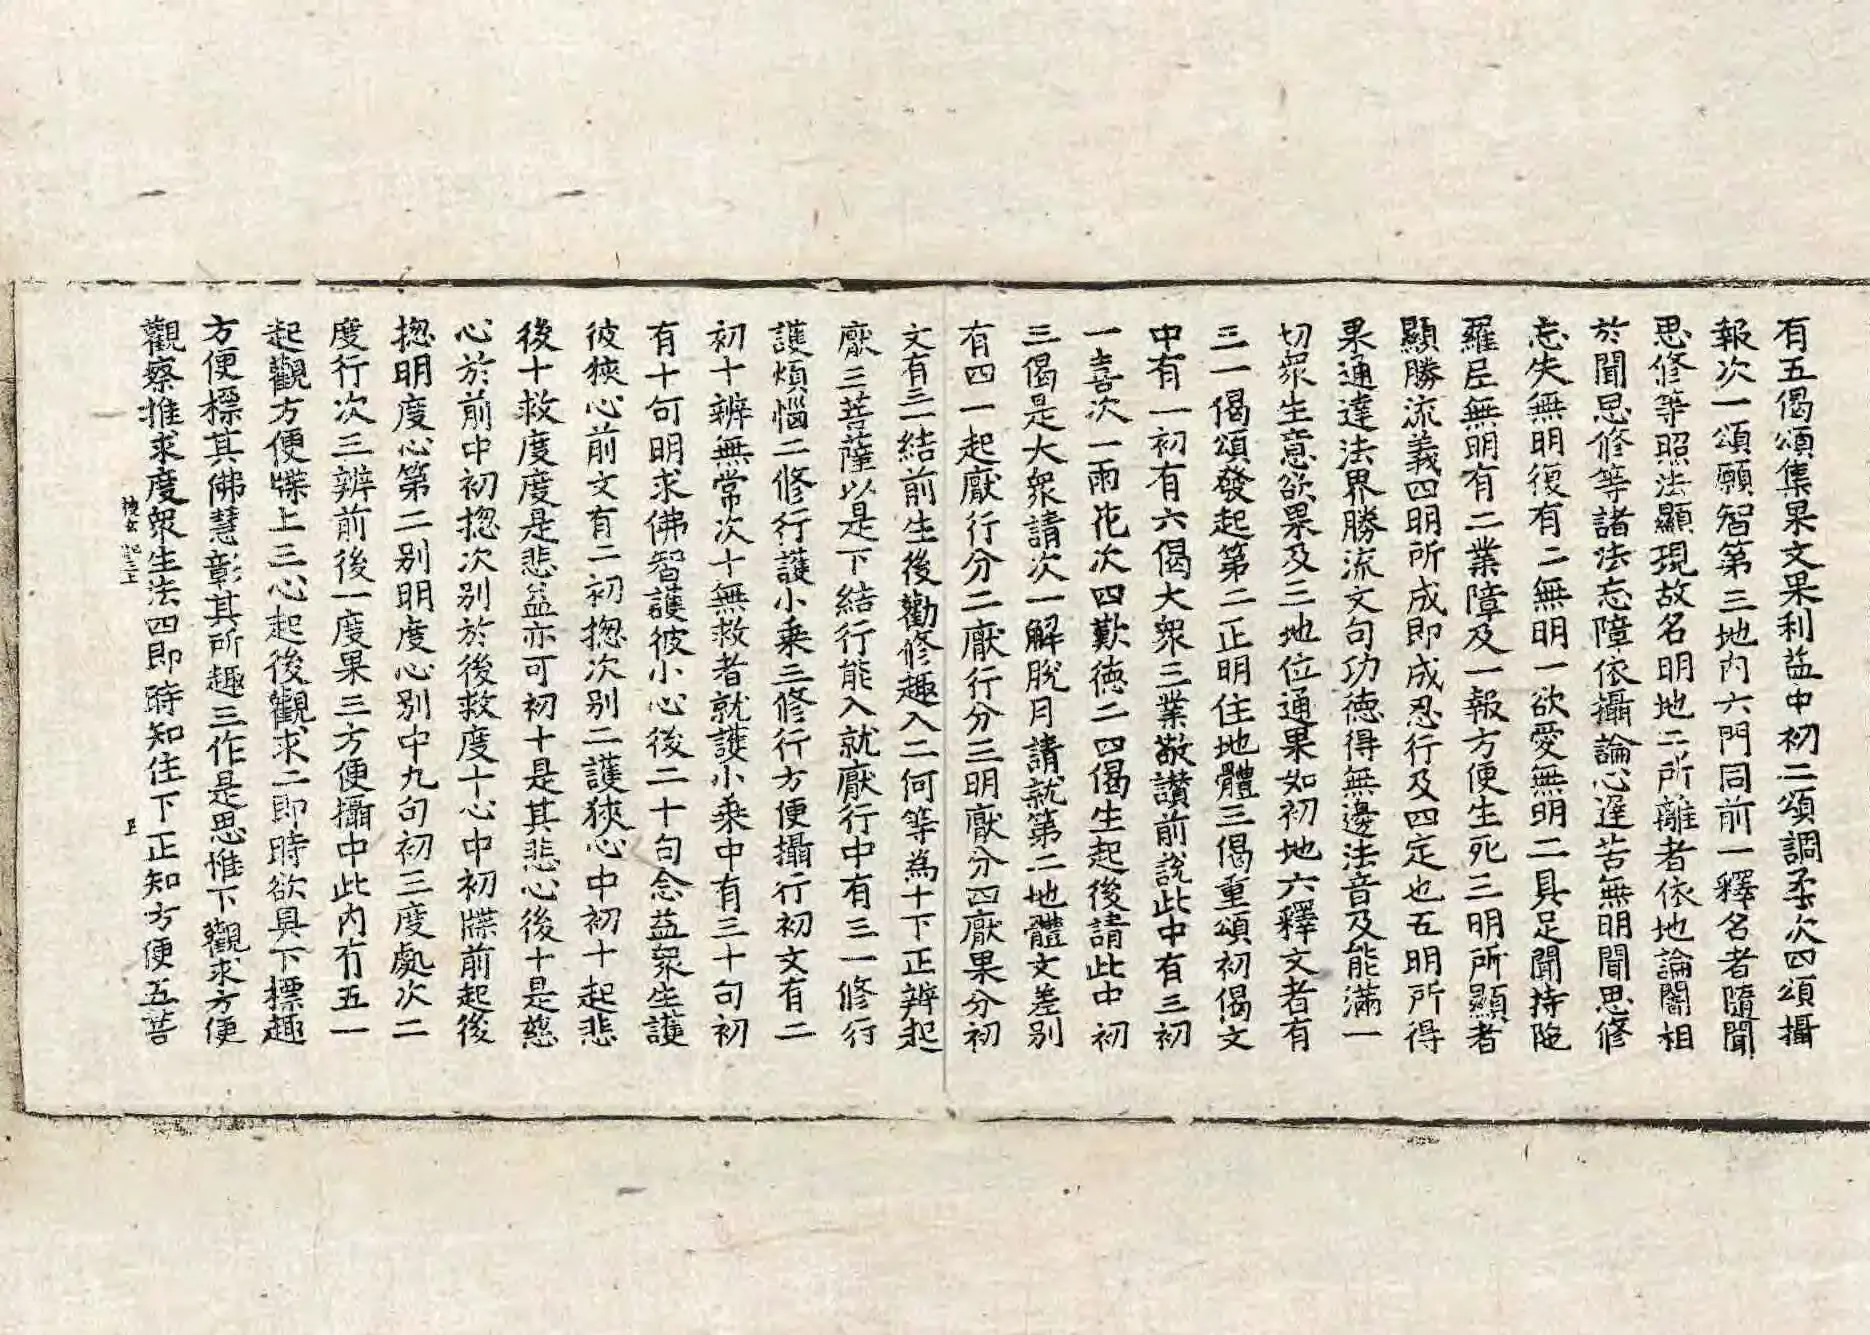 有五偈頌集果文果利益中初二頌調柔次四頌攝
報次一頌願智第三地内六門同前一釋名者隨聞
思修等照法顯現故名明地二所離者依地論闇相
於聞思修等諸法忘障依攝論心遲苦無明聞思修
忘失無明復有二無明一欲愛無明二具足聞持陁
羅尼無明有二業障及一報方便生死三明所顯者
顯勝流義四明所成即成忍行及四定也五明所得
果通達法界勝流文句功德得無邊法音及能滿一
切衆生意欲果及三地位通果如初地六釋文者有
三一偈頌發起第二正明住地體三偈重頌初偈文
中有一初有六偈大衆三業敬讃前說此中有三初
一喜次一雨花次四歎德二四偈生起後請此中初
三偈是大衆請次一解脫月請就第二地體文差別
有四一起厭行分二厭行分三明厭分四厭果分初
文有三一結前生後勸修趣入二何等為十下正辨起
厭三菩薩以是下結行能入就厭行中有三一修行
護煩惱二修行護小乘三修行方便攝行初文有二
初十辨無常次十無救者就護小乘中有三十句初
有十句明求佛智護彼小心後二十句念益衆生護
彼狹心前文有二初揔次別二護狹心中初十起悲
後十救度度是悲益亦可初十是其悲心後十是慈
心於前中初揔次別於後救度十心中初牒前起後
揔明度心第二別明度心別中九句初三度處次二
度行次三辨前後一度果三方便攝中此内有五一
起觀方便牒上三心起後觀求二即時欲具下標趣
方便標其佛慧彰其所趣三作是思惟下觀求方便
觀察推求度衆生法四即時知住下正知方便五菩